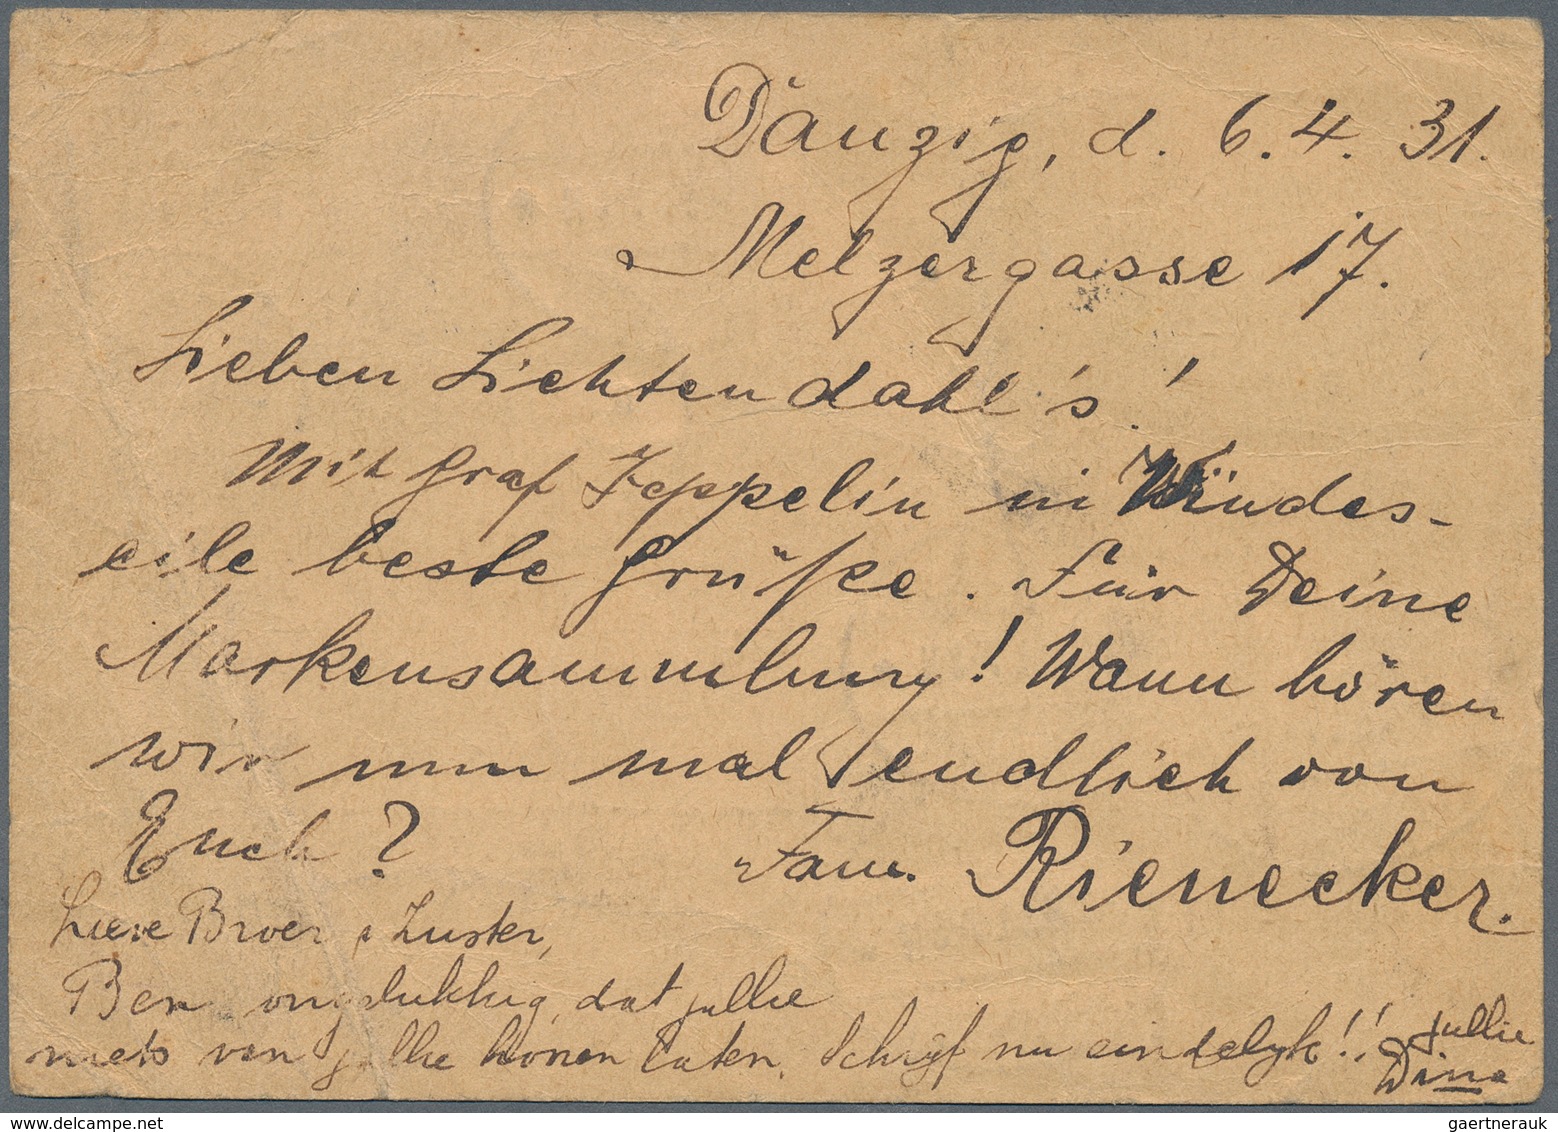 Danzig, d. 6.4.31.
Melzergasse 17.
Lieben Lichtendahl's!
Mit Graf Zeppelin in Windes-
eile beste Grüße. Für Deine
Markensammlung! Wann hören
wir nun mal endlich von
Euch? Fam. Rienecker.
Lieve Broer & Zuster,
Ben ongelukkig, dat jullie
niets van jullie horen laten. Schrijf nu eindelyk!! jullie
Dina
gaertnerauk